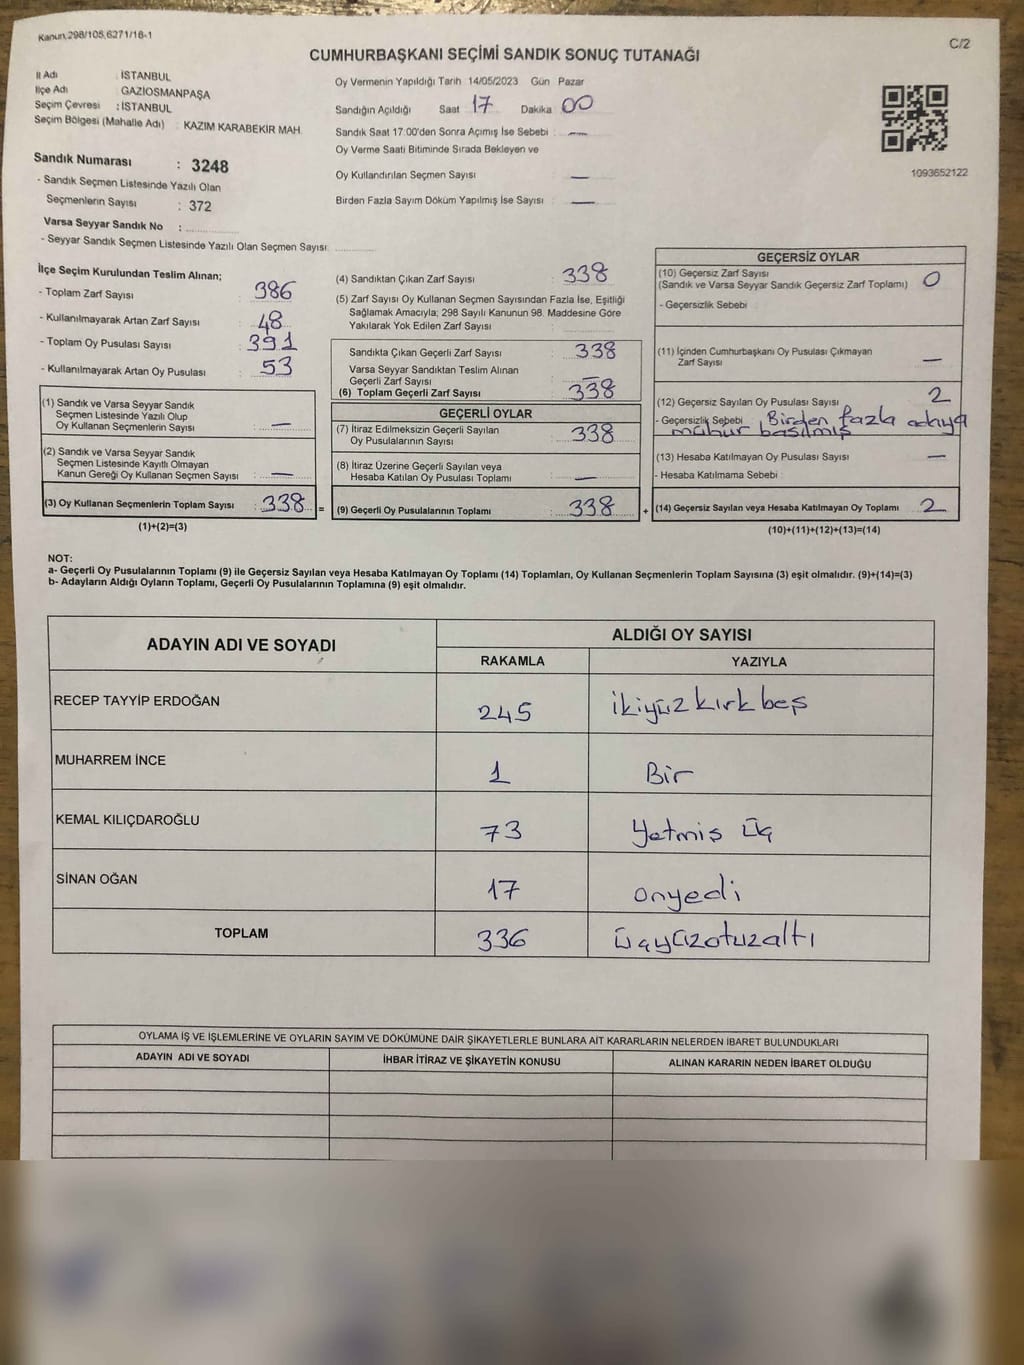 Kanun,298/105,6271/16-1
C/2
CUMHURBAŞKANI SEÇİMİ SANDIK SONUÇ TUTANAĞI
İl Adı : İSTANBUL
İlçe Adı : GAZİOSMANPAŞA
Seçim Çevresi : İSTANBUL
Seçim Bölgesi (Mahalle Adı) : KAZIM KARABEKİR MAH.
Sandık Numarası : 3248
- Sandık Seçmen Listesinde Yazılı Olan
Seçmenlerin Sayısı : 372
Varsa Seyyar Sandık No :
- Seyyar Sandık Seçmen Listesinde Yazılı Olan Seçmen Sayısı:
Oy Vermenin Yapıldığı Tarih 14/05/2023 Gün Pazar
Sandığın Açıldığı Saat 17 Dakika 00
Sandık Saat 17:00'den Sonra Açımış İse Sebebi : —
Oy Verme Saati Bitiminde Sırada Bekleyen ve
Oy Kullandırılan Seçmen Sayısı —
Birden Fazla Sayım Döküm Yapılmış İse Sayısı : —
1093652122
İlçe Seçim Kurulundan Teslim Alınan;
- Toplam Zarf Sayısı : 386
- Kullanılmayarak Artan Zarf Sayısı : 48
- Toplam Oy Pusulası Sayısı : 391
- Kullanılmayarak Artan Oy Pusulası : 53
(1) Sandık ve Varsa Seyyar Sandık
Seçmen Listesinde Yazılı Olup
Oy Kullanan Seçmenlerin Sayısı : —
(2) Sandık ve Varsa Seyyar Sandık
Seçmen Listesinde Kayıtlı Olmayan
Kanun Gereği Oy Kullanan Seçmen Sayısı : —
(3) Oy Kullanan Seçmenlerin Toplam Sayısı : 338 =
(1)+(2)=(3)
(4) Sandıktan Çıkan Zarf Sayısı : 338
(5) Zarf Sayısı Oy Kullanan Seçmen Sayısından Fazla İse, Eşitliği
Sağlamak Amacıyla; 298 Sayılı Kanunun 98. Maddesine Göre
Yakılarak Yok Edilen Zarf Sayısı :
Sandıkta Çıkan Geçerli Zarf Sayısı : 338
Varsa Seyyar Sandıktan Teslim Alınan
Geçerli Zarf Sayısı : —
(6) Toplam Geçerli Zarf Sayısı : 338
GEÇERLİ OYLAR
(7) İtiraz Edilmeksizin Geçerli Sayılan
Oy Pusulalarının Sayısı : 338
(8) İtiraz Üzerine Geçerli Sayılan veya
Hesaba Katılan Oy Pusulaları Toplamı : —
(9) Geçerli Oy Pusulalarının Toplamı : 338 +
GEÇERSİZ OYLAR
(10) Geçersiz Zarf Sayısı : 0
(Sandık ve Varsa Seyyar Sandık Geçersiz Zarf Toplamı)
- Geçersizlik Sebebi :
(11) İçinden Cumhurbaşkanı Oy Pusulası Çıkmayan
Zarf Sayısı : —
(12) Geçersiz Sayılan Oy Pusulası Sayısı : 2
- Geçersizlik Sebebi : Birden fazla adaya
mühür basılmış
(13) Hesaba Katılmayan Oy Pusulası Sayısı : —
- Hesaba Katılmama Sebebi :
(14) Geçersiz Sayılan veya Hesaba Katılmayan Oy Toplamı : 2
(10)+(11)+(12)+(13)=(14)
NOT:
a- Geçerli Oy Pusulalarının Toplamı (9) ile Geçersiz Sayılan veya Hesaba Katılmayan Oy Toplamı (14) Toplamları, Oy Kullanan Seçmenlerin Toplam Sayısına (3) eşit olmalıdır. (9)+(14)=(3)
b- Adayların Aldığı Oyların Toplamı, Geçerli Oy Pusulalarının Toplamına (9) eşit olmalıdır.
ADAYIN ADI VE SOYADI ALDIĞI OY SAYISI
RAKAMLA YAZIYLA
RECEP TAYYİP ERDOĞAN 245 ikiyüzkırkbeş
MUHARREM İNCE 1 Bir
KEMAL KILIÇDAROĞLU 73 Yetmiş üç
SİNAN OĞAN 17 onyedi
TOPLAM 336 üçyüzotuzaltı
OYLAMA İŞ VE İŞLEMLERİNE VE OYLARIN SAYIM VE DÖKÜMÜNE DAİR ŞİKAYETLERLE BUNLARA AİT KARARLARIN NELERDEN İBARET BULUNDUKLARI
ADAYIN ADI VE SOYADI İHBAR İTİRAZ VE ŞİKAYETİN KONUSU ALINAN KARARIN NEDEN İBARET OLDUĞU